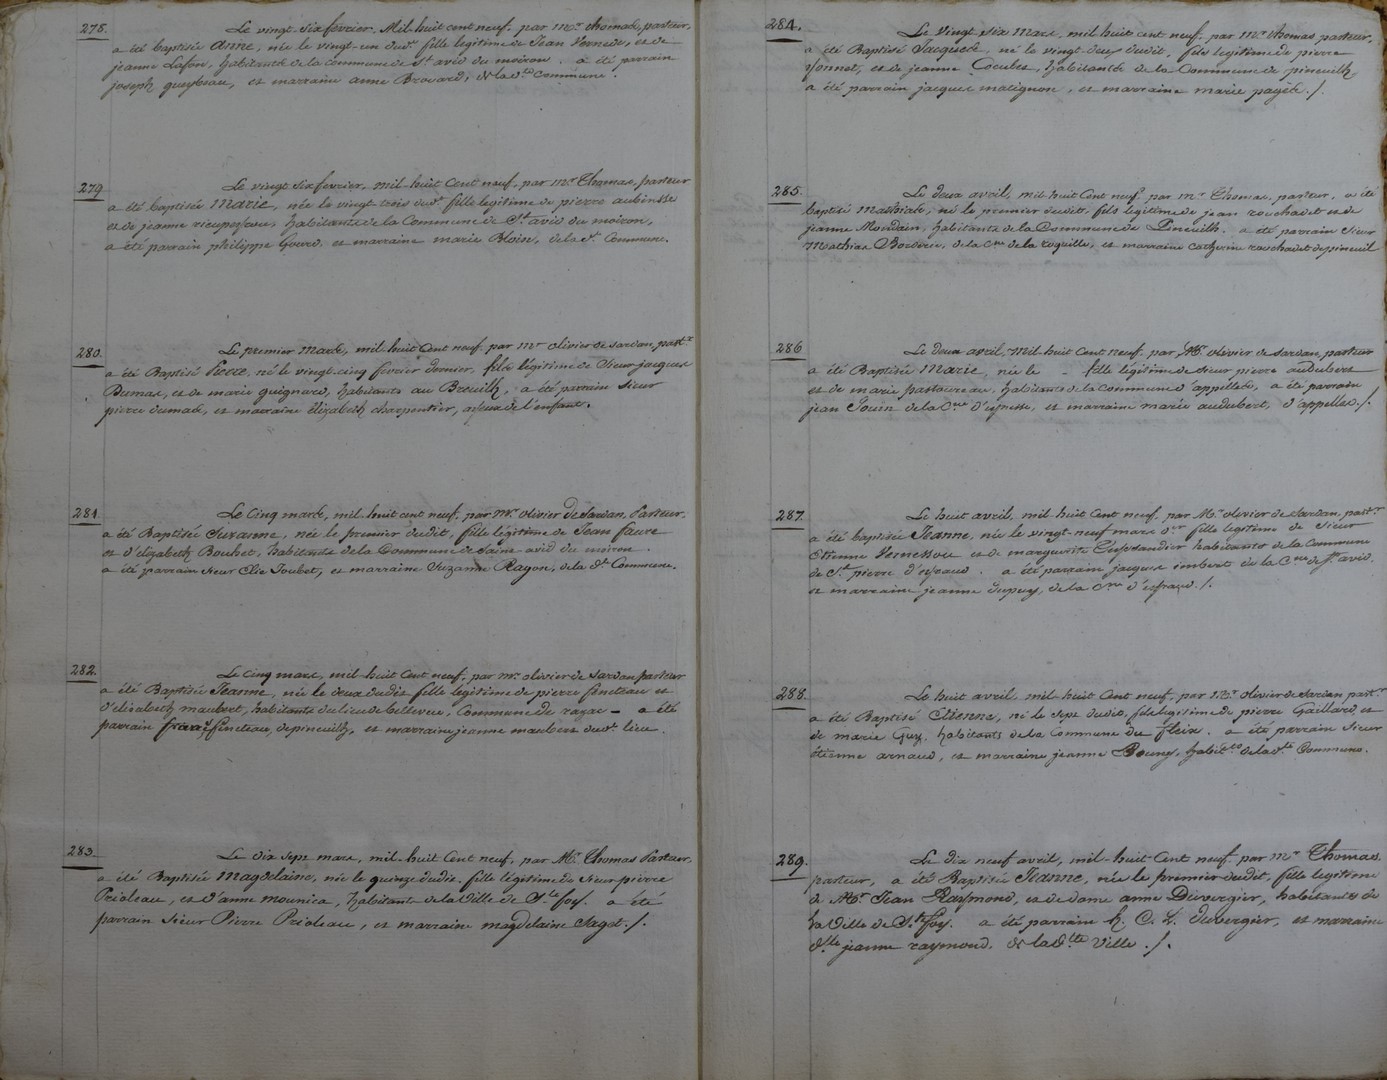 278. Le vingt six fevrier, Mil huit cent neuf, par mr. thomas, pasteur,
a été baptisée Anne, née le vingt-un dudt. fille legitime de Jean Vernede, et de
jeanne Lafon, habitants de la Commune de St. avid du moiron. a été parrain
joseph queyreau, et marraine anne Brouard, de la dte. Commune.
279 Le vingt six fevrier, mil-huit Cent neuf, par mr. Thomas, pasteur
a été baptisée Marie, née le vingt trois dudt. fille legitime de pierre
et de jeanne habitants de la Commune de St. avid du moiron,
a été parrain philippe Gourd, et marraine marie Bloin, de la dt. Commune.
280. Le premier Mars, mil-huit Cent neuf, par mr olivier de Sardan, pastr.
a été Baptisé Pierre, né le vingt-cinq fevrier dernier, fils légitime de Sieur jacques
Dumas, et de marie guignard, habitants au Breuilh, a été parrain Sieur
pierre dumas, et marraine élizabeth charpentier, ayeux de l'enfant.
281. Le Cinq mars, mil-huit cent neuf, par mr. olivier de Sardan, Pasteur,
a été Baptisée Suzanne, née le premier dudit, fille légitime de Jean faure
et d'elizabeth Bouhet, habitants de la Commune de Saint avid du moiron.
a été parrain Sieur Elie Joubet, et marraine Suzanne Rayon, de la dte. Commune.
282. Le Cinq mars, mil-huit Cent neuf, par mr. olivier de Sardan pasteur
a été Baptisée Jeanne, née le deux dudit fille legitime de pierre fineteau et
d'elizabeth maubert, habitants du lieu de bellevue, Commune de razac - a été
parrain fineteau, de pineuilh, et marraine jeanne maubert dudt. lieu.
283 Le dix sept mars, mil-huit Cent neuf, par Mr. Thomas Pasteur,
a été Baptisée Magdelaine, née le quinze dudit, fille légitime de Sieur pierre
Prioleau, et d'anne mounica, habitants de la Ville de Ste. foy. a été
parrain Sieur Pierre Prioleau, et marraine magdelaine Sagot./.
284. Le Vingt six Mars, mil huit cent neuf, par mr. thomas pasteur,
a été Baptisé Jacques, né le vingt-deux dudit, fils legitime de pierre
et de jeanne habitants de la Commune de pineuilh,
a été parrain jacques matignon, et marraine marie ./.
285. Le deux avril, mil-huit Cent neuf, par mr. Thomas, pasteur, a été
baptisé Mathias, né le premier dudit, fils légitime de jean rouchadet et de
jeanne Mourdain, habitants de la Commune de Pineuilh. a été parrain Sieur
Mathias Borderie, de la Cne de la roquille, et marraine Catherine rouchadet de pineuil
286 Le deux avril, mil-huit Cent neuf, par Mr. olivier de Sardan, pasteur
a été Baptisée Marie, née le - fille légitime de Sieur pierre audubert
et de marie pastoureau, habitants de la Commune d'appelles, a été parrain
jean Jouin de la Cne. d' et marraine marie audubert, d'appelles./.
287. Le huit avril, mil huit Cent neuf, par Mr. olivier de Sardan, pastr.
a été baptisée Jeanne, née le vingt-neuf mars der. fille legitime de Sieur
Etienne et de marguerite habitants de la Commune
de St. pierre d'eyraud. a été parrain jacques imbert de la Cne de St. avid.
et marraine jeanne dupuy, de la Cne d'eyraud./.
288. Le huit avril, mil-huit Cent neuf, par mr. olivier de Sardan pastr.
a été Baptisé Etienne, né le Sept dudit, fils legitime de pierre Gaillard, et
de marie Guy, habitants de la Commune du fleix. a été parrain Sieur
étienne arnaud, et marraine jeanne Bouny, habitts. de la dte. Commune.
289. Le dix neuf avril, mil-huit Cent neuf, par mr Thomas,
pasteur, a été Baptisée Jeanne, née le premier dudit, fille legitime
de Mr. Jean Raymond, et de dame anne Duvergier, habitants de
la Ville de Ste. foy. a été parrain h. C. L. duvergier, et marraine
dlle jeanne raymond, de la dtte ville ./.